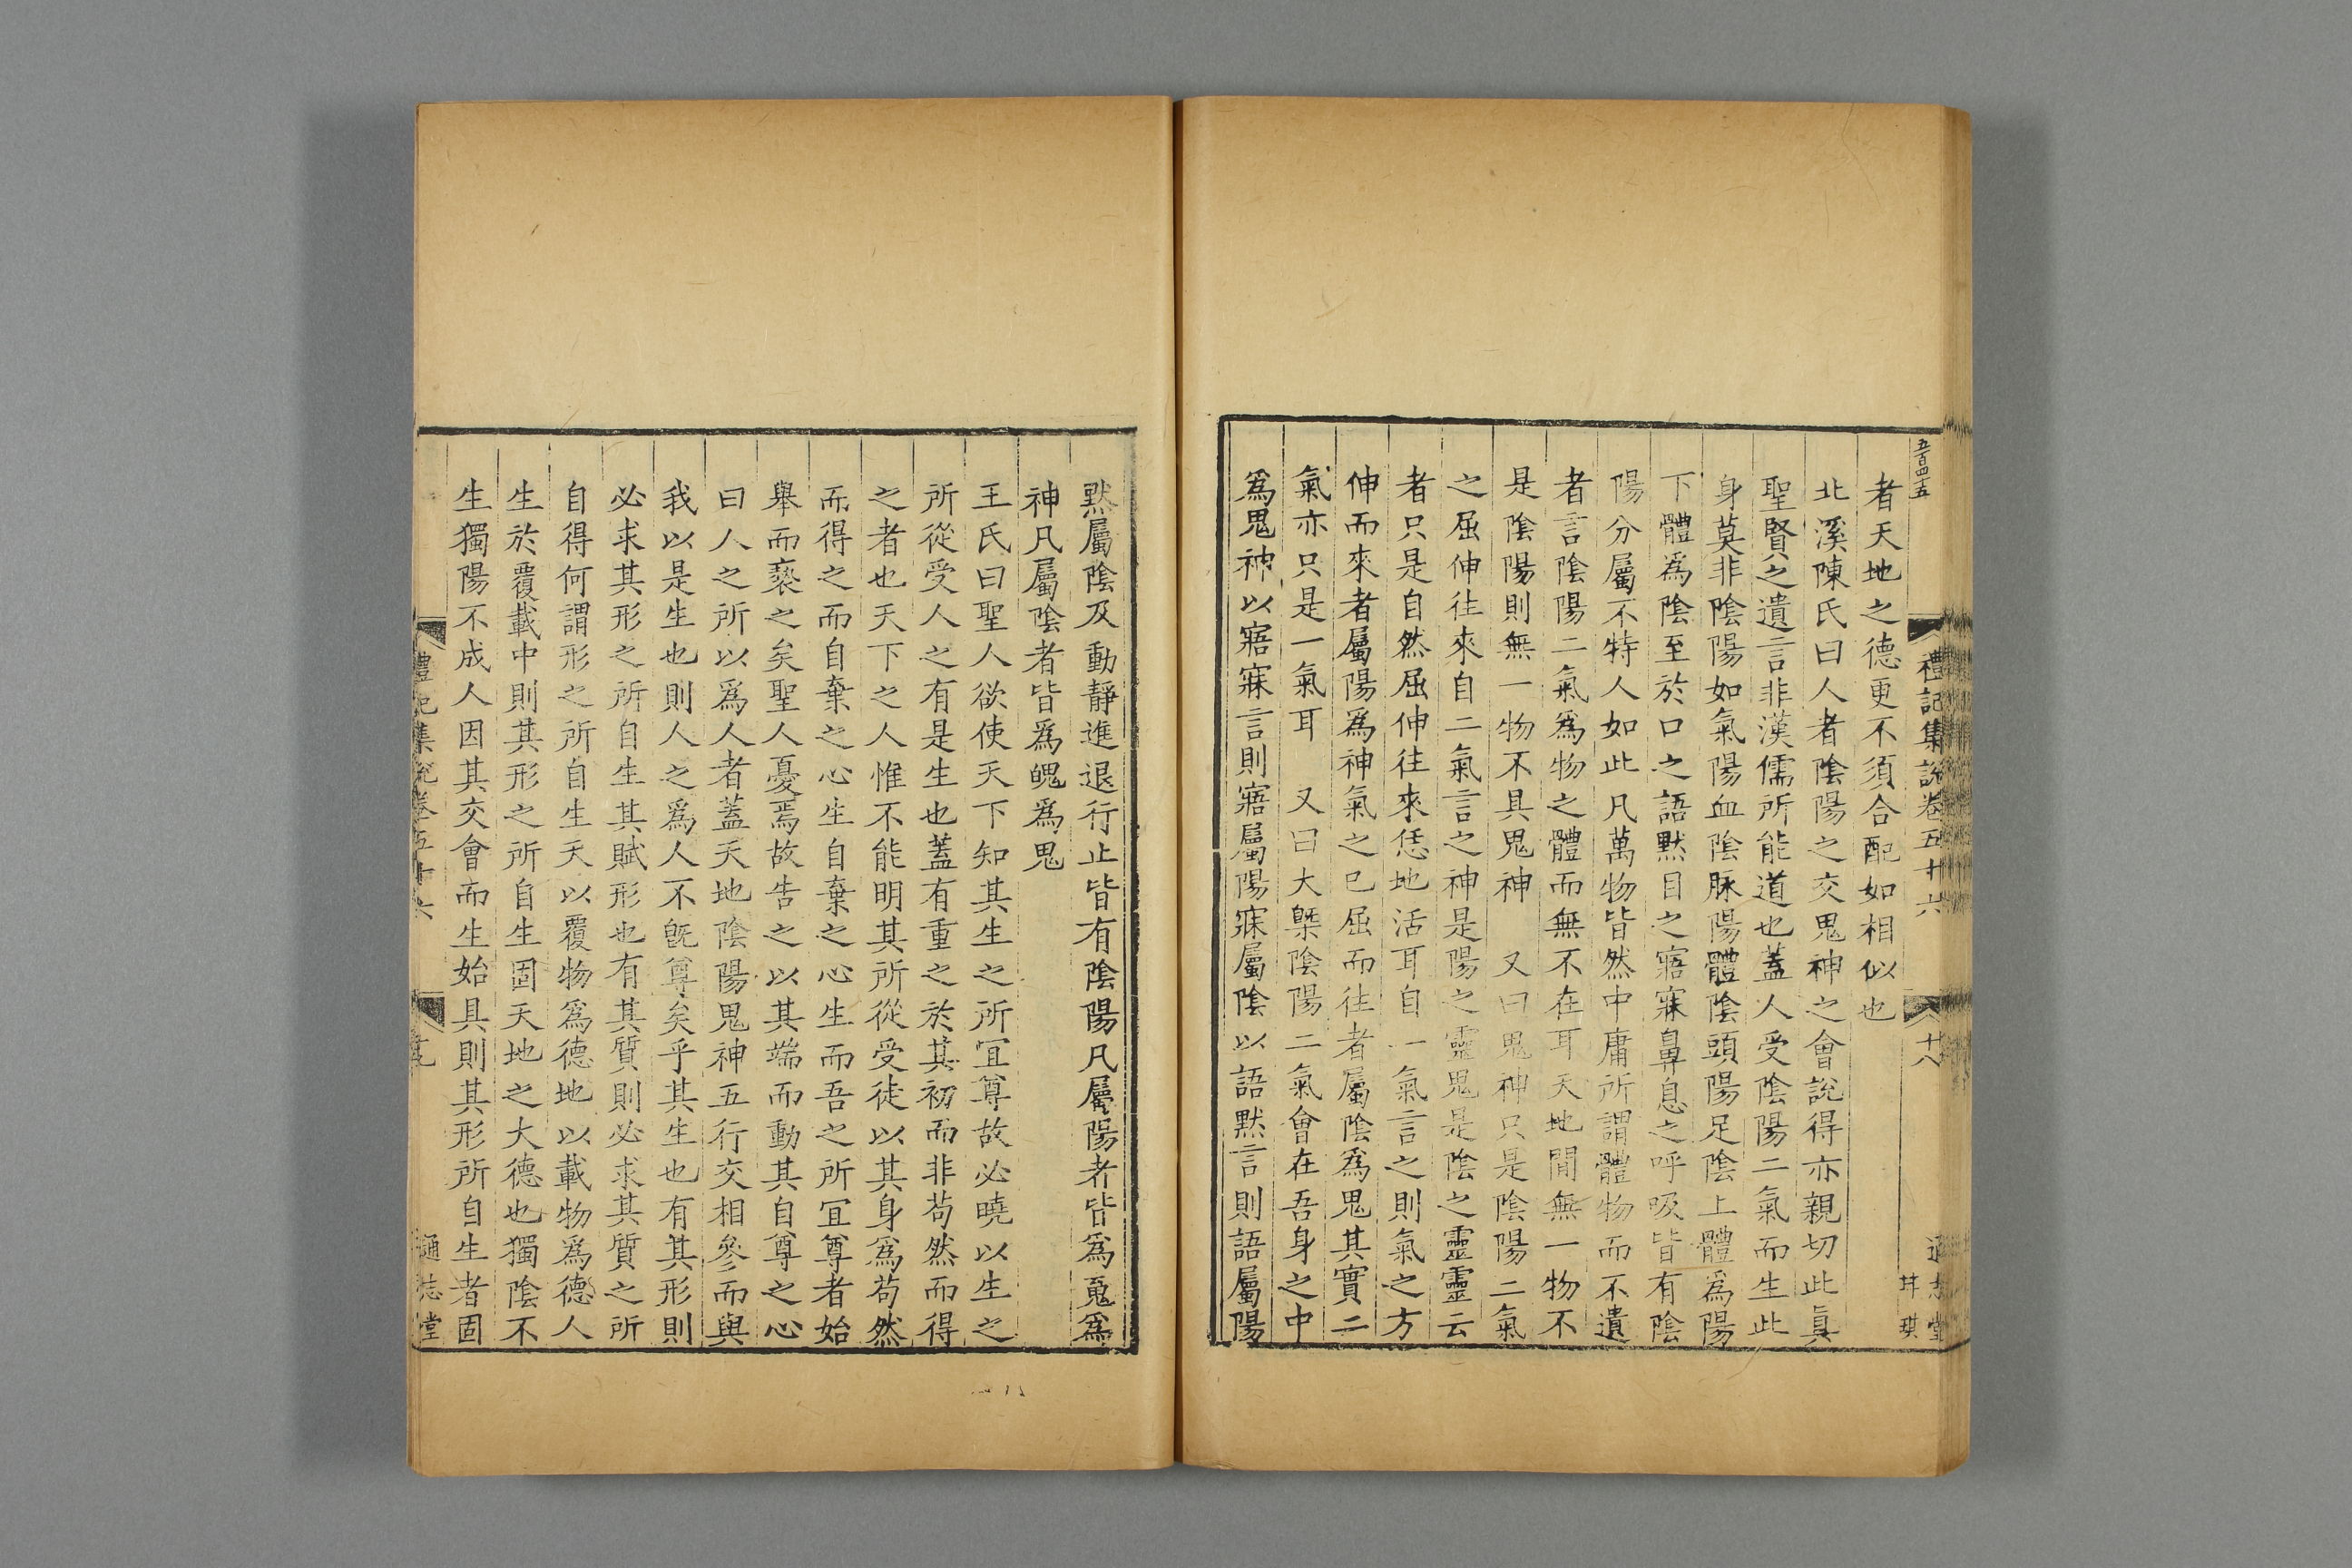 五百四十五
禮記集說卷五十六
十八
通志堂
井琪
者天地之德更不須合配如相似也
北溪陳氏曰人者陰陽之交鬼神之會說得亦親切此真
聖賢之遺言非漢儒所能道也蓋人受陰陽二氣而生此
身莫非陰陽如氣陽血陰脉陽體陰頭陽足陰上體爲陽
下體爲陰至於口之語默目之寤寐鼻息之呼吸皆有陰
陽分屬不特人如此凡萬物皆然中庸所謂體物而不遺
者言陰陽二氣爲物之體而無不在耳天地閒無一物不
是陰陽則無一物不具鬼神 又曰鬼神只是陰陽二氣
之屈伸往來自二氣言之神是陽之靈鬼是陰之靈靈云
者只是自然屈伸往來恁地活耳自一氣言之則氣之方
伸而來者屬陽爲神氣之已屈而往者屬陰爲鬼其實二
氣亦只是一氣耳 又曰大槩陰陽二氣會在吾身之中
爲鬼神以寤寐言則寤屬陽寐屬陰以語默言則語屬陽
黙屬陰及動靜進退行止皆有陰陽凡屬陽者皆爲䰟爲
神凡屬陰者皆爲魄爲鬼
王氏曰聖人欲使天下知其生之所冝尊故必曉以生之
所從受人之有是生也蓋有重之於其初而非苟然而得
之者也天下之人惟不能明其所從受徒以其身爲苟然
而得之而自棄之心生自棄之心生而吾之所冝尊者始
舉而褻之矣聖人憂焉故告之以其端而動其自尊之心
曰人之所以爲人者蓋天地陰陽鬼神五行交相參而與
我以是生也則人之爲人不旣尊矣乎其生也有其形則
必求其形之所自生其賦形也有其質則必求其質之所
自得何謂形之所自生天以覆物爲德地以載物爲德人
生於覆載中則其形之所自生固天地之大德也獨陰不
生獨陽不成人因其交會而生始具則其形所自生者固
禮記集說卷五十六
通志堂